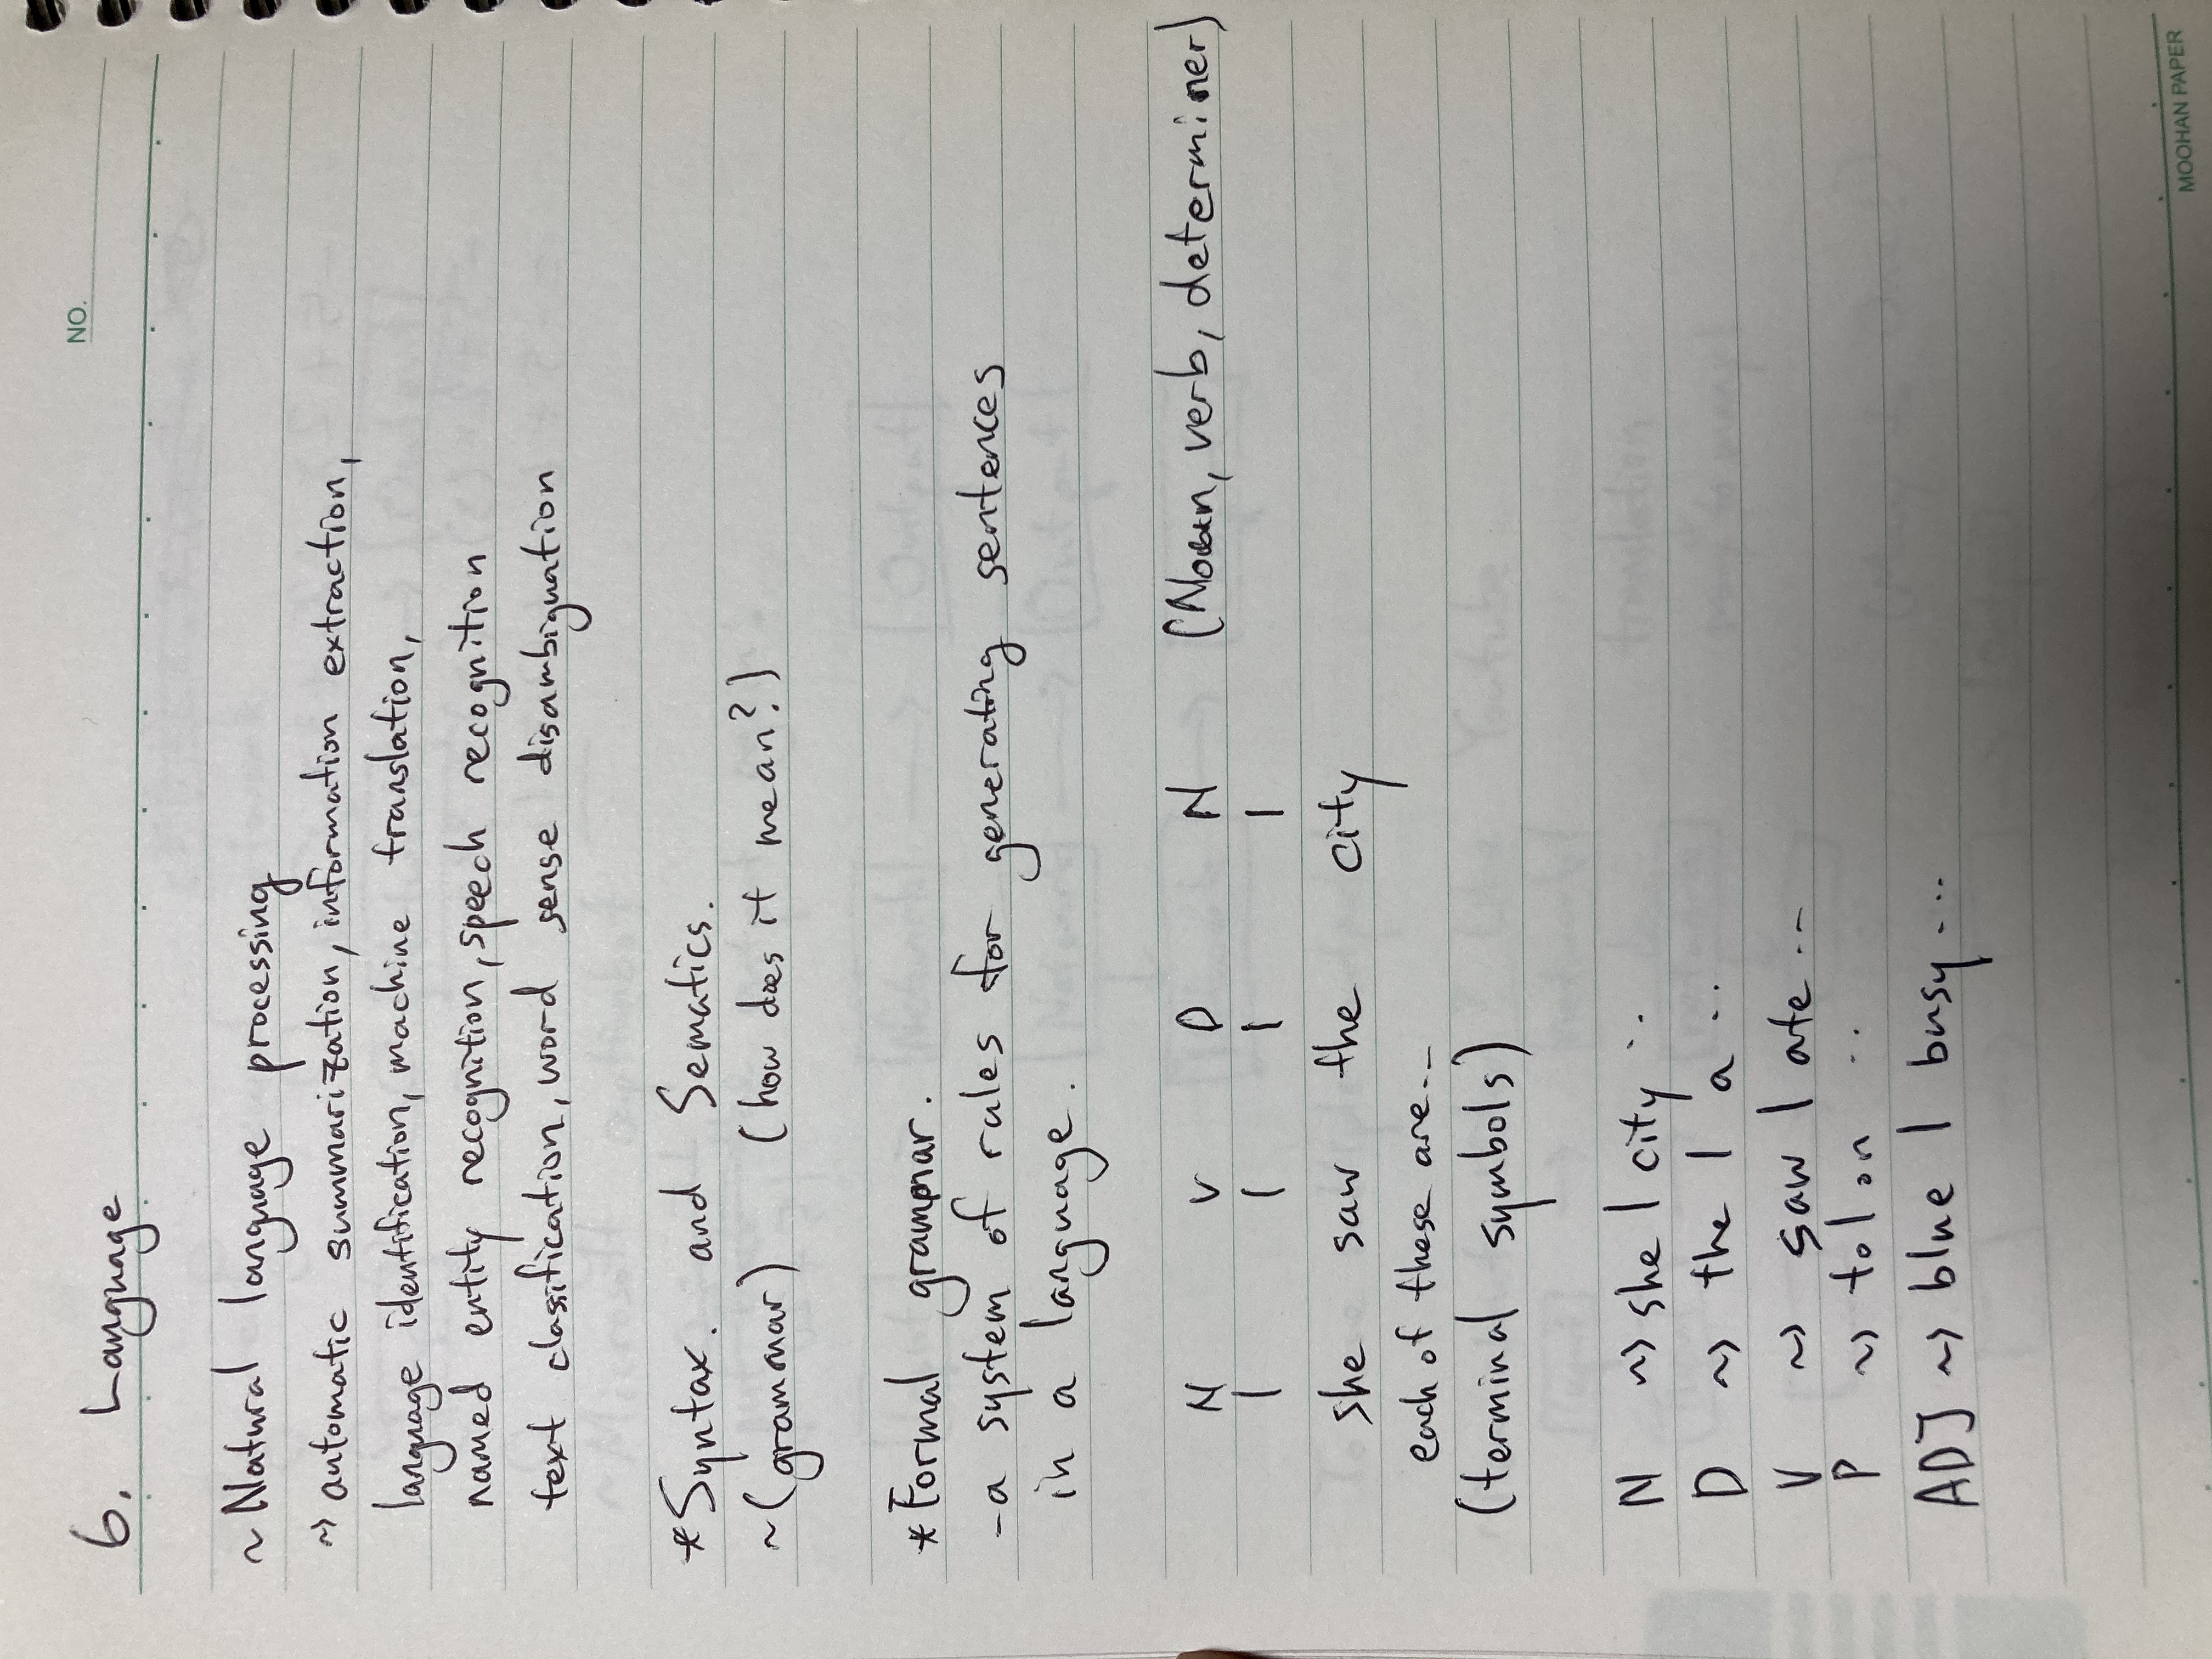 NO.
6. Language
~ Natural language processing
~> automatic summarization, information extraction,
language identification, machine translation,
named entity recognition, speech recognition
text classification, word sense disambiguation
*Syntax. and Sematics.
~(grammar) (how does it mean?)
*Formal grammar.
-a system of rules for generating sentences
in a language.
N V D N (Noun, verb, determiner)
| | | |
she saw the city
each of these are...
(terminal symbols)
N ~> she | city ..
D ~> the | a ..
V ~> saw | ate ..
P ~> to | on ..
ADJ ~> blue | busy ...
MOOHAN PAPER